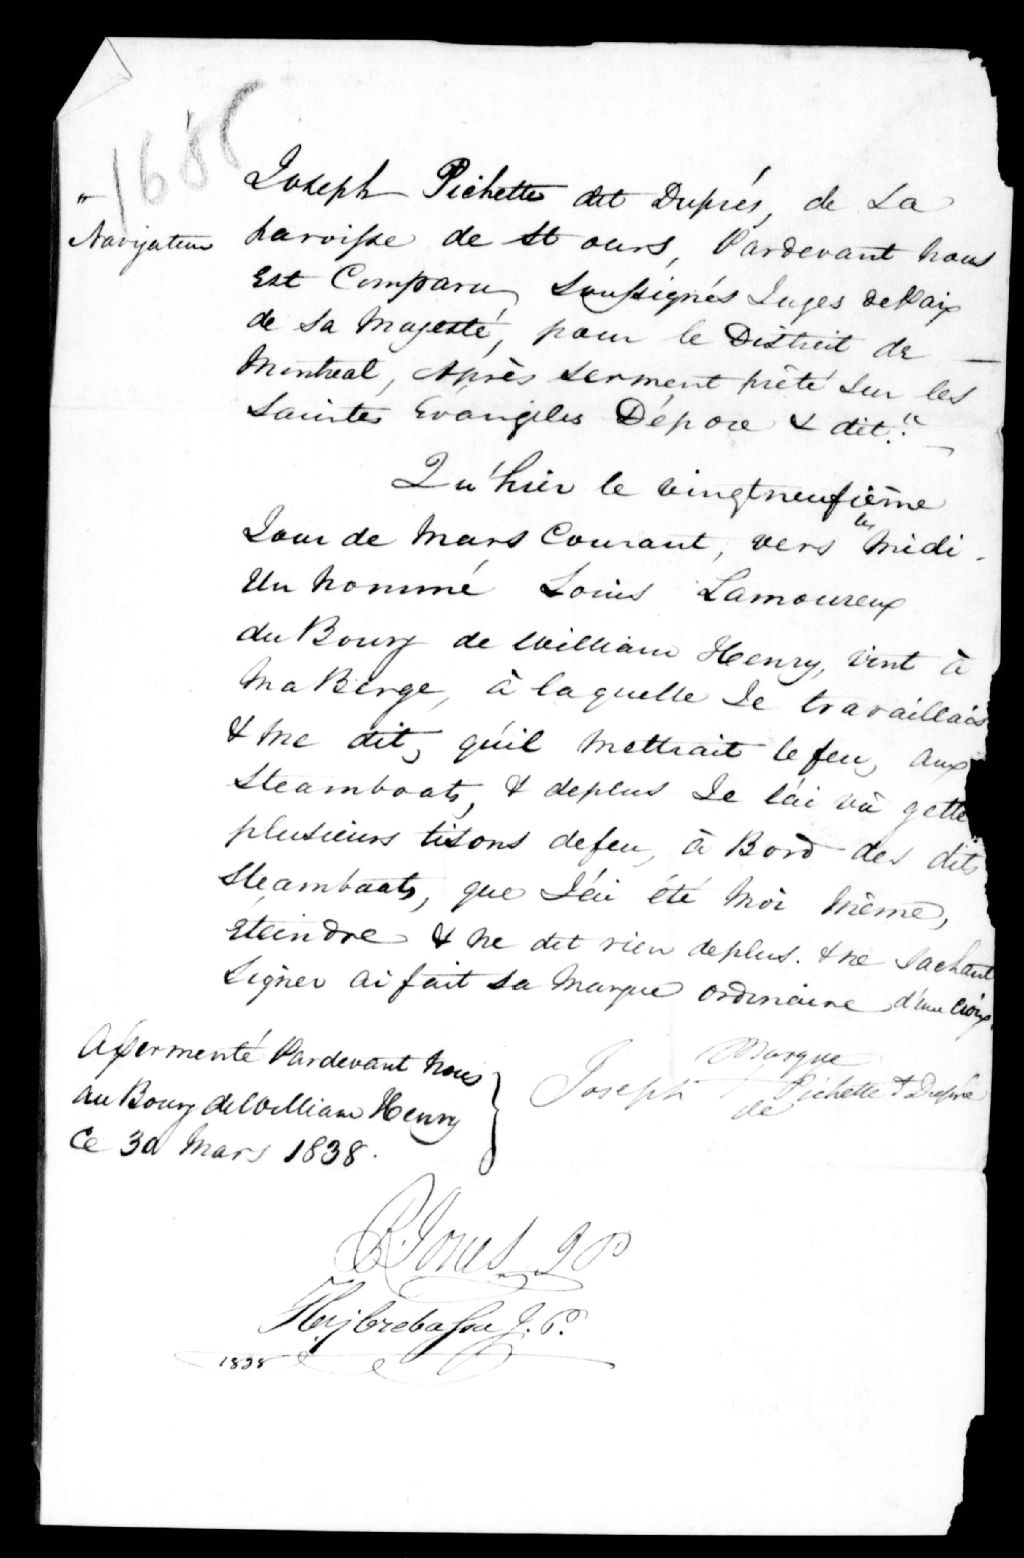 168
Joseph Pichette dit Duprés, de La
"
Navigateur
Paroisse de St ours, Pardevant nous
Est Comparu, Soussignés Juges de Paix
de Sa Majesté, pour le District de
Montreal, Après serment prêté sur les
Saintes Évangiles Dépose & dit."
Qu'hier le vingtneufième
Jour de Mars Courant, vers les Midi
Un nommé Louis Lamoureux
du Bourg de William Henry, vint à
Ma Berge, à laquelle Je travaillais
& me dit, qu'il mettrait le feu, aux
Steamboats, & deplus Je l'ai vû getter
plusieurs tisons defeu, à Bord des dits
Steamboats, que J'ai été Moi Même,
eteindre & ne dit rien deplus. & ne Sachant
Signer ai fait sa marque ordinaire d'une Croix
Assermenté Pardevant nous
au Bourg de William Henry
Ce 30 Mars 1838.
Marque
Joseph + Pichette dt Dupré
de
R. Jones JP
H. Crebassa J. P.
1838